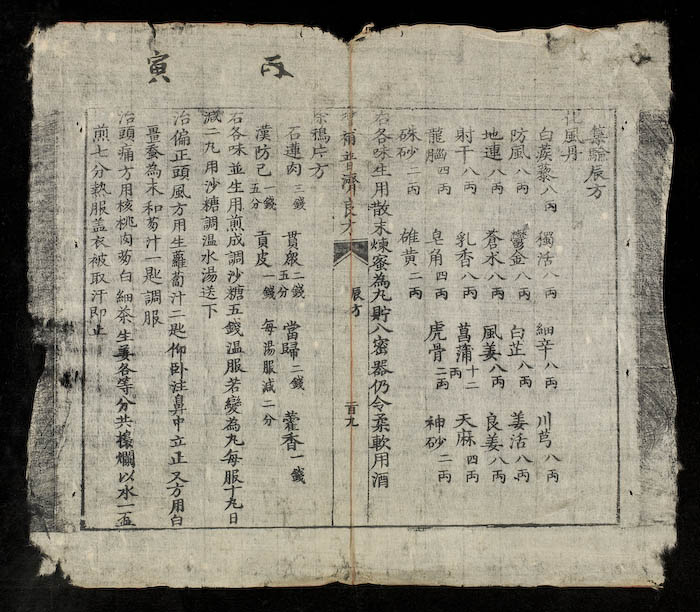 丙寅
集驗良方
化風丹
白蒺藜 八両 獨活 八両 細辛 八両 川芎 八両
防風 八両 鬱金 八両 白芷 八両 姜活 八両
地連 八両 蒼本 八両 風姜 八両 良姜 八両
射干 八両 乳香 八両 菖蒲 十二両 天麻 四両
龍腦 四両 皂角 四両 虎骨 二両 神砂 二両
硃砂 二両 雄黄 二両
右各味生用散末煉蜜為丸貯八密器仍令柔軟用酒
補普濟良方 辰方 百九
鴉片方
石蓮肉 三錢 貫眾 二錢五分 當歸 二錢 藿香 一錢
漢防己 一錢五分 貢皮 一錢 每湯服減二分
右各味並生用煎成調沙糖五錢温服若變為丸每服十九日
減二丸用沙糖調温水湯送下
治偏正頭風方用生蘿蔔汁二匙仰卧注鼻中立止又方用白
薑蚕為末和芶汁一匙調服
治頭痛方用核桃肉芶白細茶生姜各等分共擣爛以水一盃
煎七分熱服盖衣被取汗即止